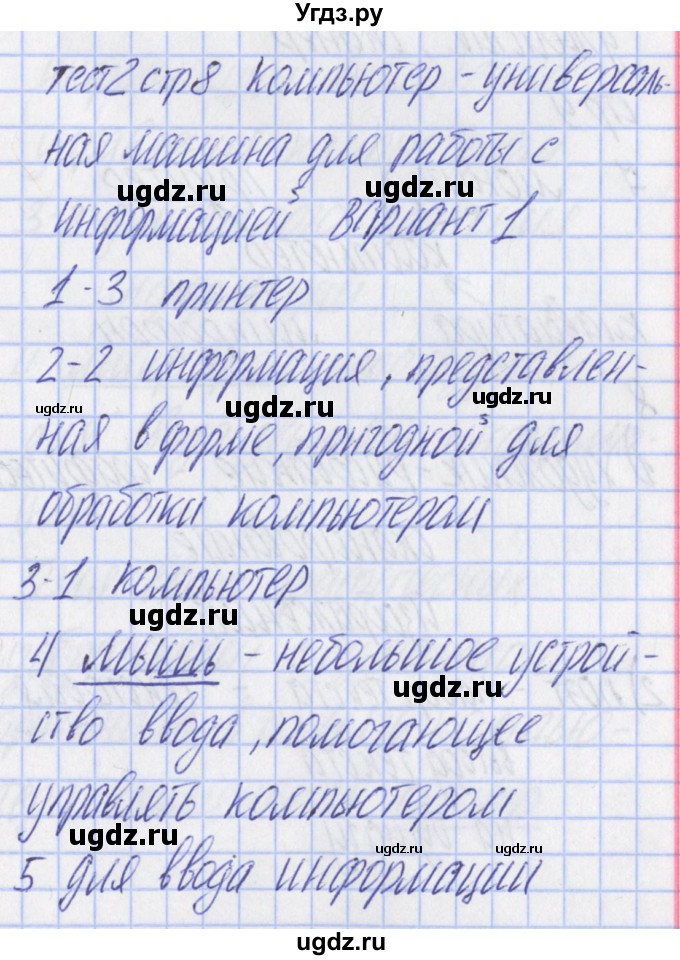 Угдз.ру
тест 2 стр 8 компьютер - универсаль-
ная машина для работы с
ugdz.ru ugdz.ru
информацией вариант 1
1-3 принтер
2-2 информация, представлен-
ugdz.ru ugdz.ru ugdz.ru
ная в форме, пригодной для
обработки компьютером
3-1 компьютер
ugdz.ru
4 мышь - небольшое устрой-
ugdz.ru
ство ввода, помогающее
управлять компьютером
ugdz.ru ugdz.ru ugdz.ru
5 для ввода информации
ugdz.ru